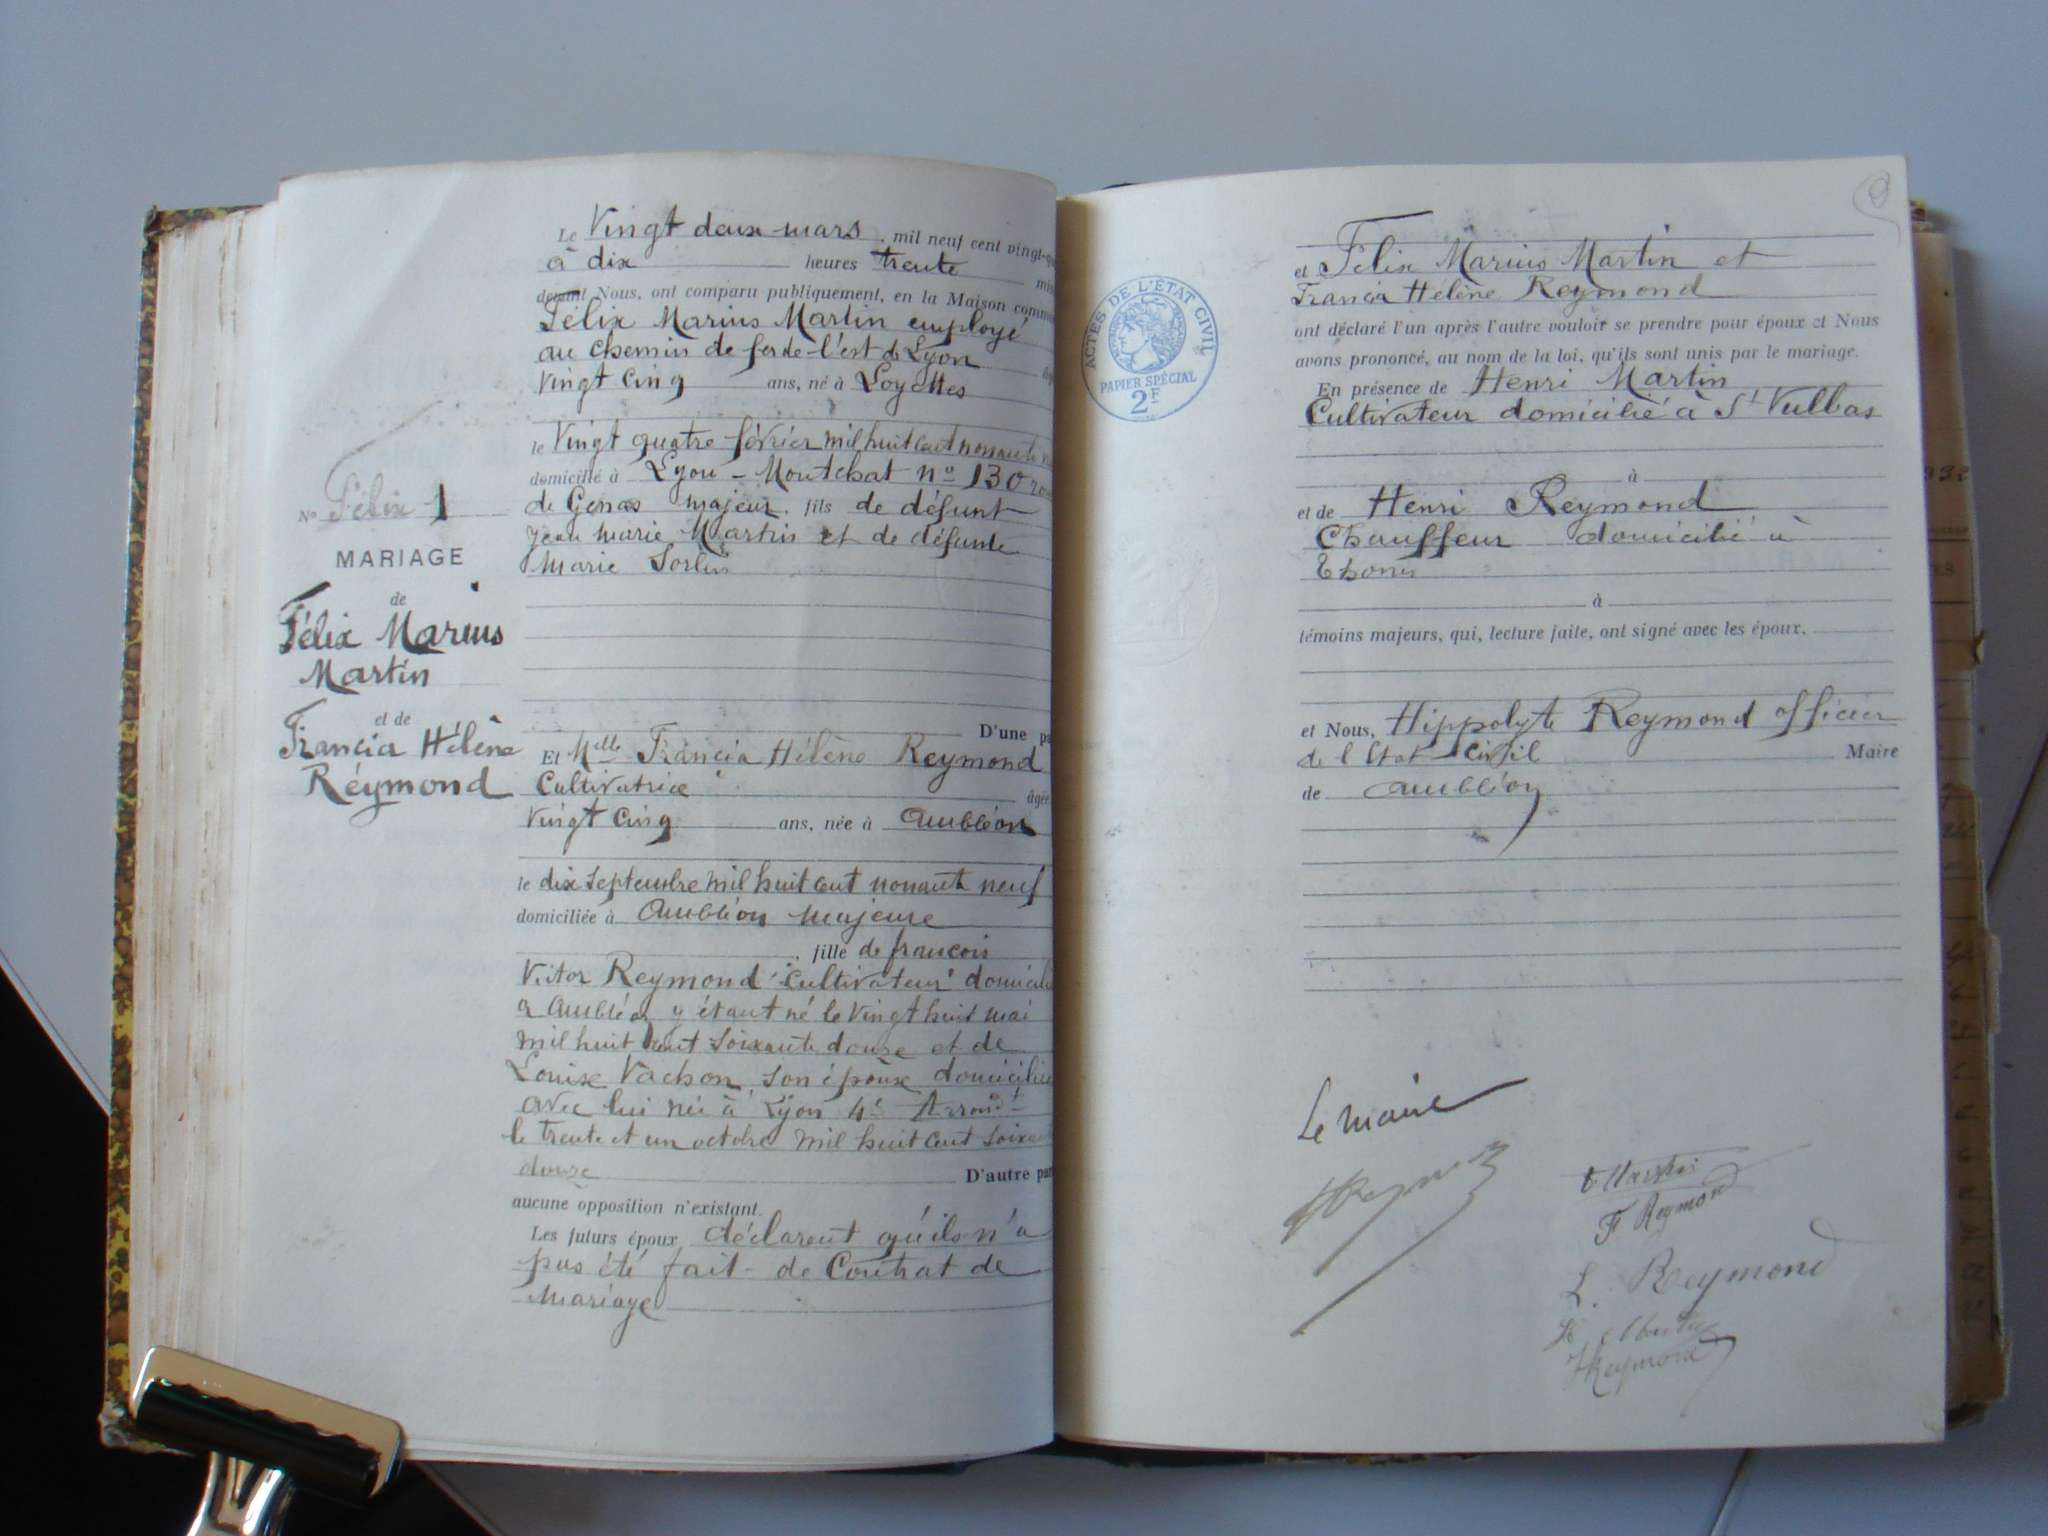 Le Vingt deux mars, mil neuf cent
à dix heures trente
devant Nous, ont comparu publiquement, en la Maison
Félix Marius Martin employé
au Chemin de fer de l'est de Lyon
Vingt Cinq ans, né à Loyettes
le Vingt quatre février mil huit cent nonante
domicilié à Lyon - Montchat n° 130
de Genas majeur, fils de défunt
Jean Marie Martin et de défunte
Marie Sorlin
D'une
Et Melle Francia Hélène Reymond
Cultivatrice âgée
Vingt Cinq ans, née à Ambléon
le dix septembre mil huit cent nonante neuf
domiciliée à Ambléon majeure
, fille de francois
Victor Reymond Cultivateur
a Ambléon y étant né le Vingt huit mai
mil huit cent soixante douze et de
Louise Vachon son épouse
avec lui née à Lyon 4e Arrondt
le trente et un octobre mil huit cent
douze D'autre
aucune opposition n'existant.
Les futurs époux déclarent qu'ils n'a
pas été fait de Contrat de
Mariage
No Félix 1
MARIAGE
de
Félix Marius
Martin
et de
Francia Hélène
Réymond
et Félix Marius Martin et
Francia Hélène Reymond
ont déclaré l'un après l'autre vouloir se prendre pour époux et Nous
avons prononcé, au nom de la loi, qu'ils sont unis par le mariage.
En présence de Henri Martin
Cultivateur domicilié à St Vulbas
à
et de Henri Reymond
Chauffeur domicilié à
à
témoins majeurs, qui, lecture faite, ont signé avec les époux.
et Nous, Hippolyte Reymond officier
de l'Etat Civil Maire
de Ambléon
Le Maire
HReymond
F Reymond
L. Reymond
HReymond
ACTES DE L'ÉTAT CIVIL
PAPIER SPÉCIAL
2F